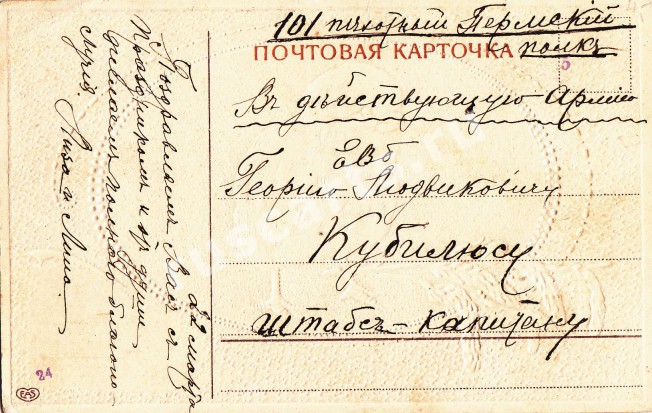 101 пехотный Пермскій
ПОЧТОВАЯ КАРТОЧКА полкъ
Въ дѣйствующую Армію
ЕВб
Георгію Людвиковичу
Кубилюсу
Штабсъ-капитану
22 марта
Поздравляемъ Васъ съ
Праздникомъ и отъ души
желаемъ полного благопо
лучія,
Лиза и
24
5
EAS